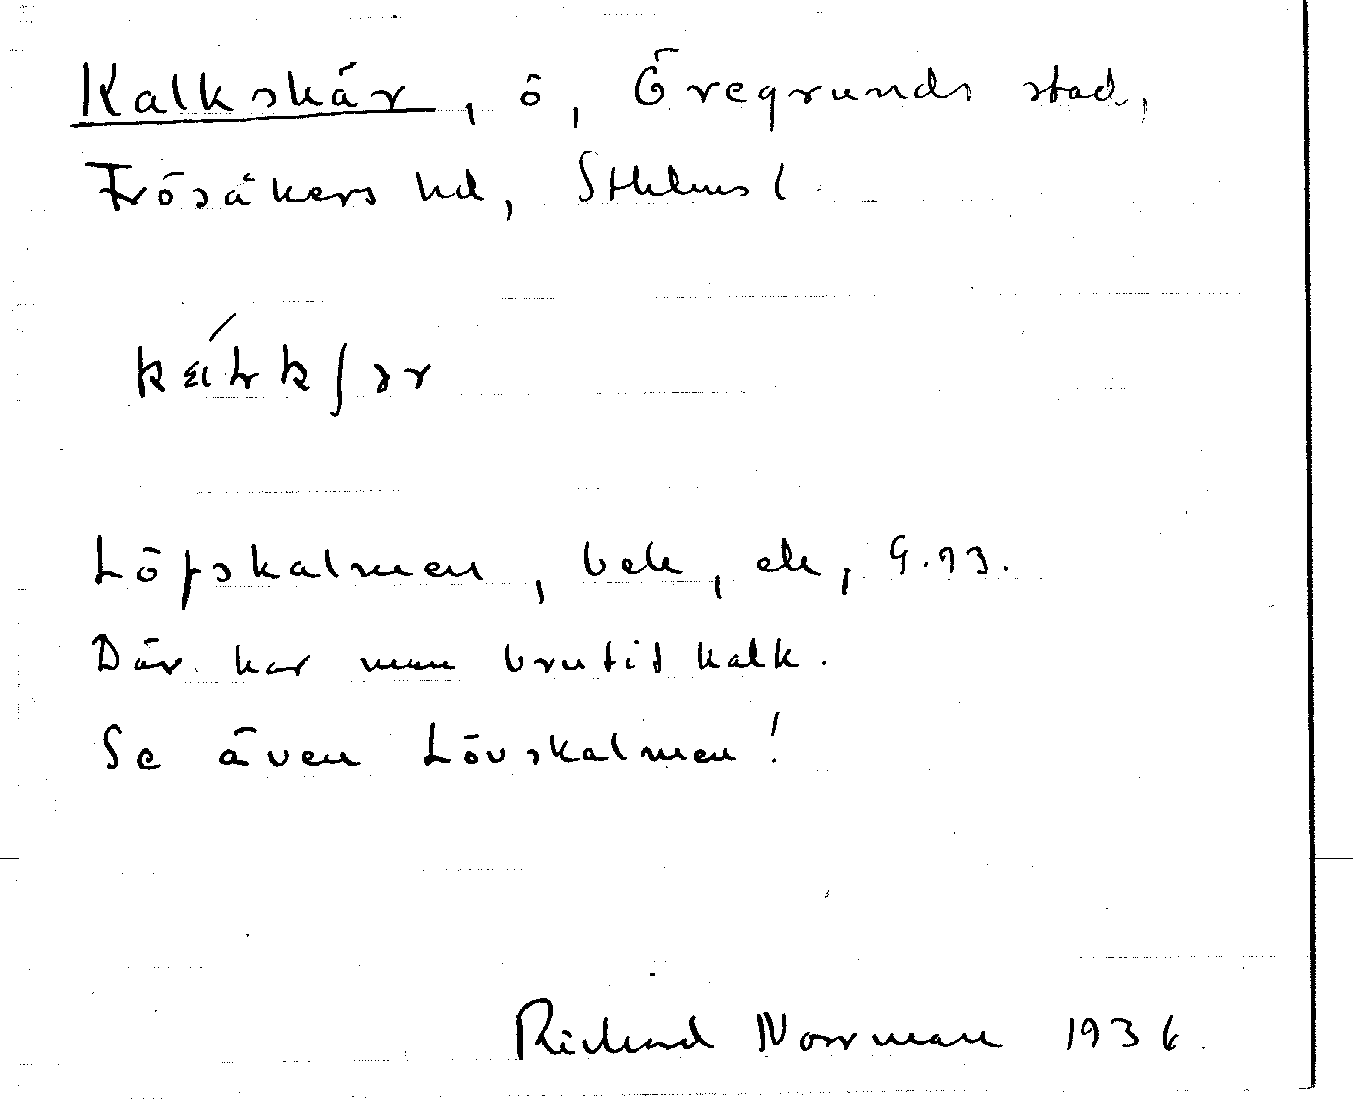 Kalkskär, ö, Öregrunds stad,
Frösåkers hd, Sthlms l.
Löfskalmen, bek, ek, G.93.
Där har man brutit kalk.
Se även Lövskalmen!
Richard Norrman 1936.